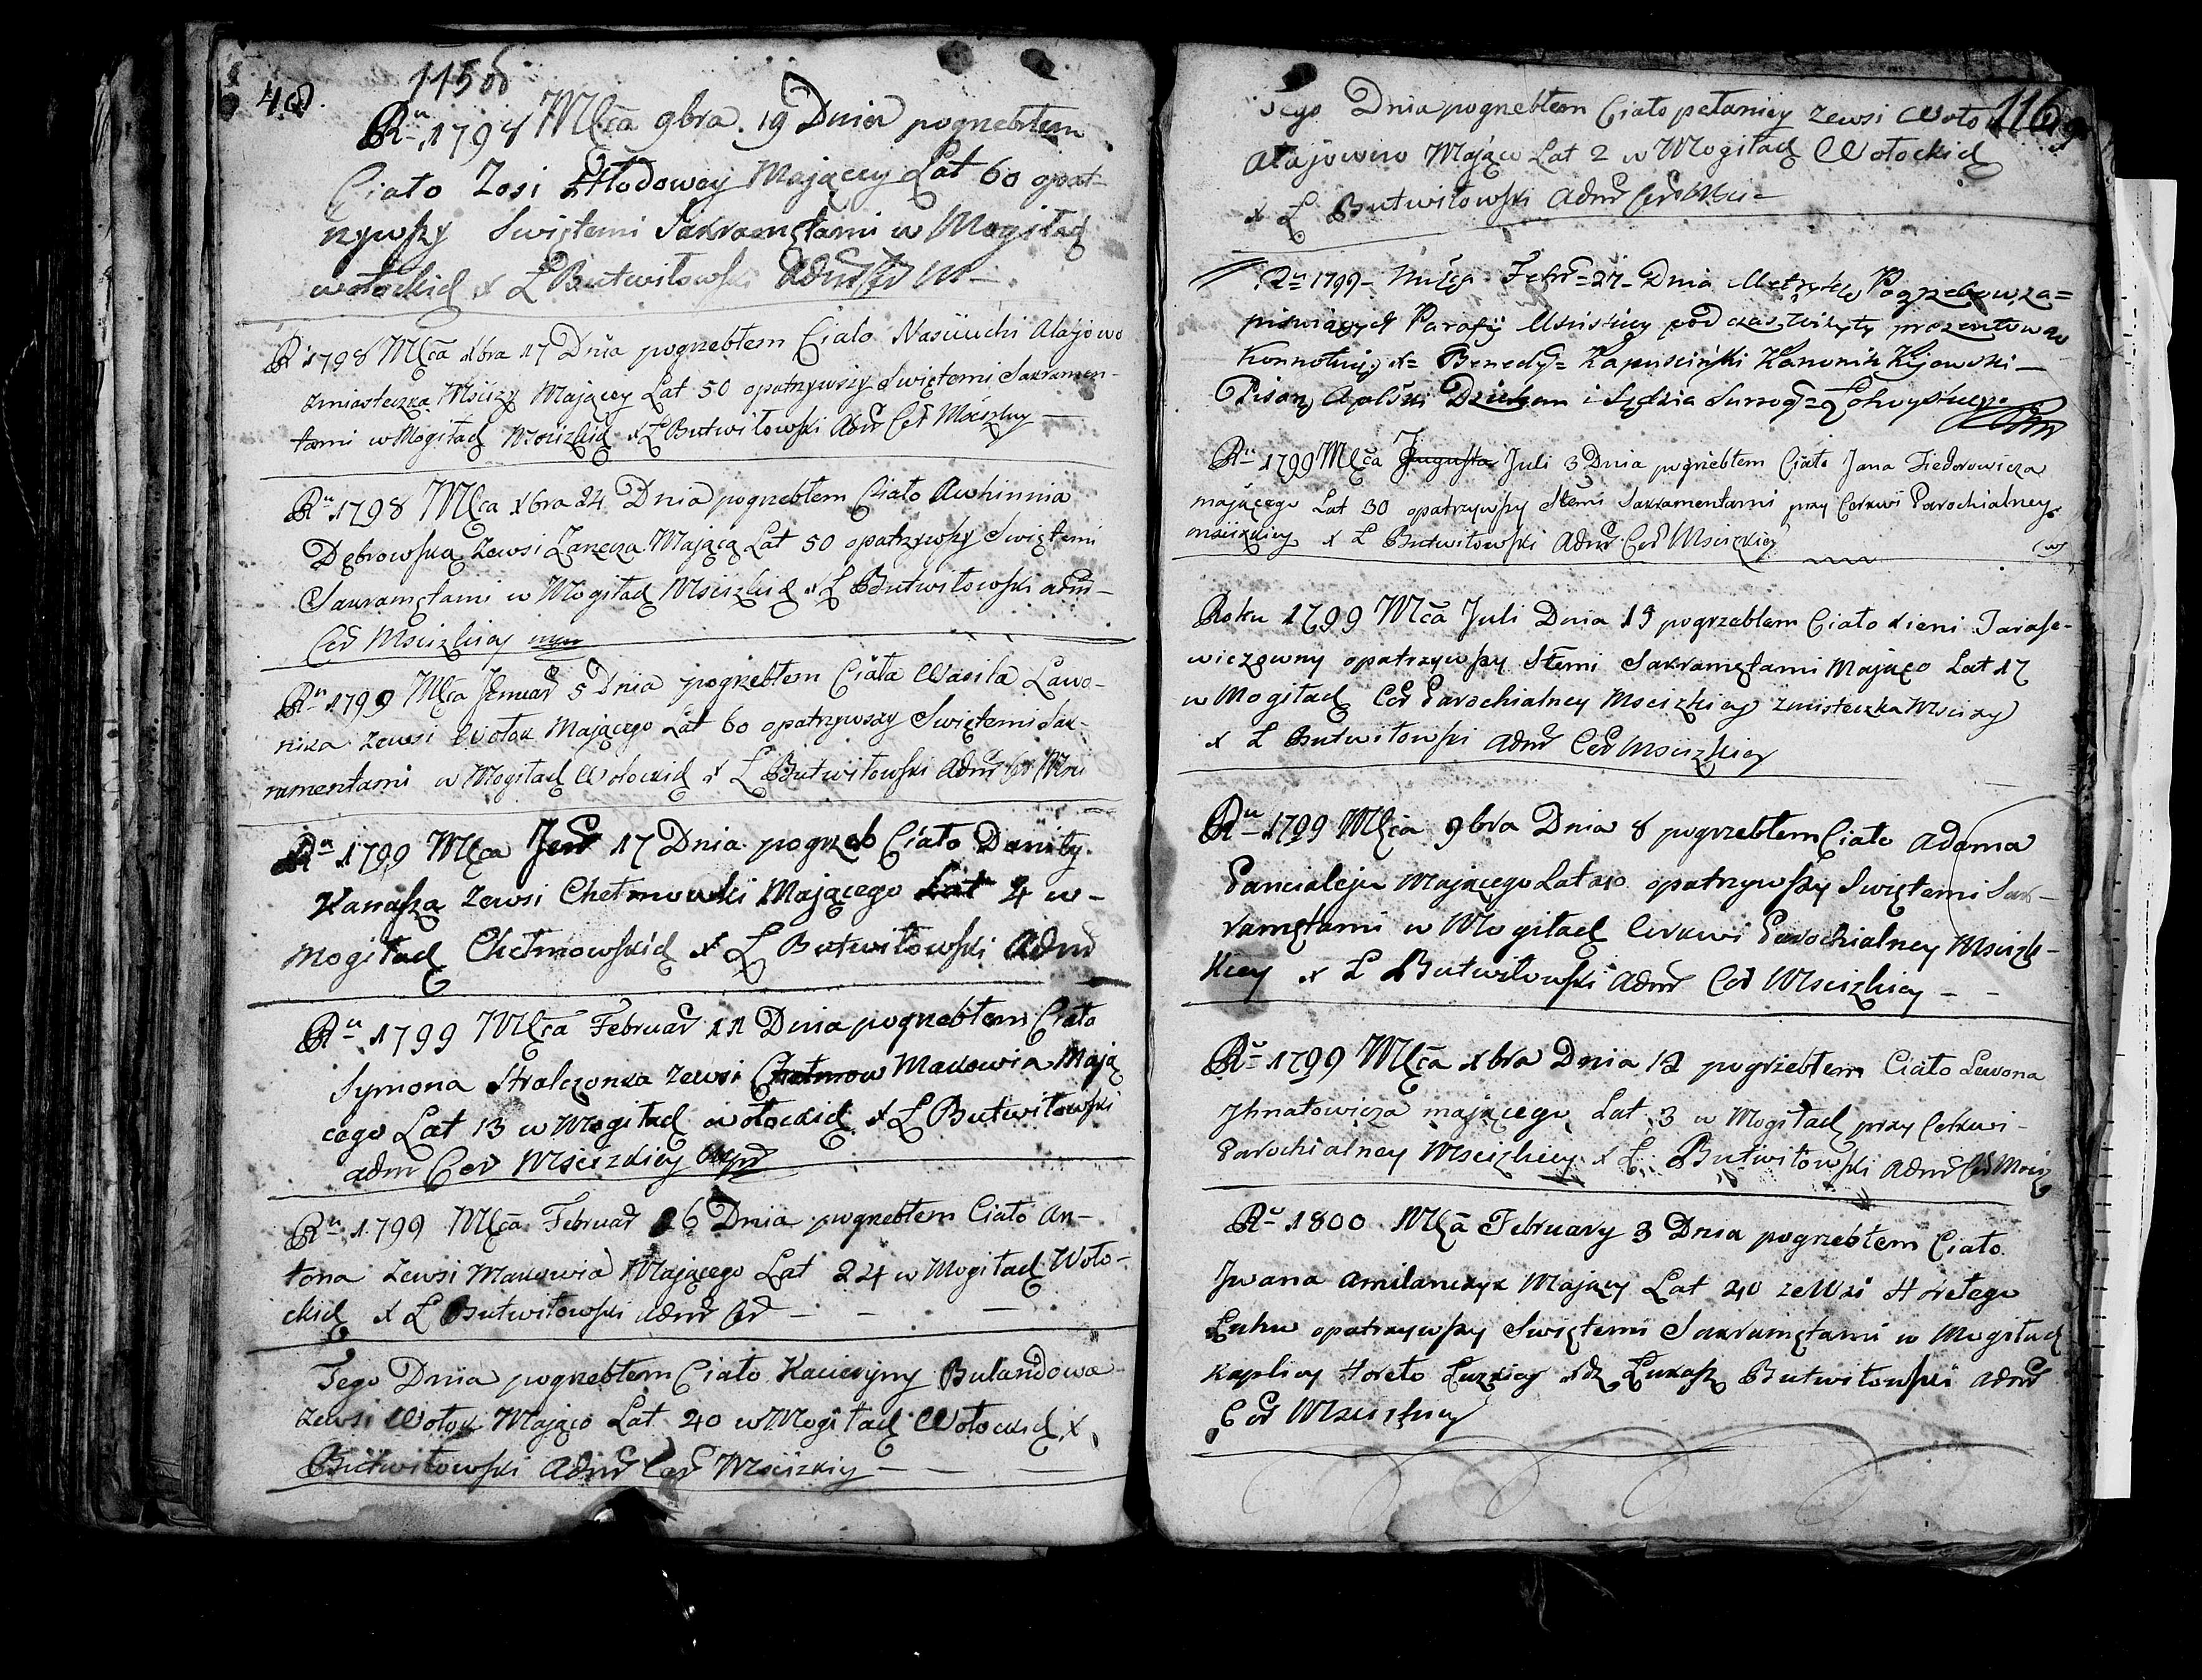 40.
115об
Ru 1798 Mca 9bra 19 Dnia pogrzebłem
Ciało Zosi Mającey Lat 60 opat-
rzywszy Swiętemi Sakramętami w Mogiład
wołockid x Ł Butwiłowski Admr Cer M-
Ru 1798 Mca xbra 17 Dnia pogrzebłem Ciało Nasciuchi Alajowo
zmiasteczka Mscizy Mającey Lat 50 opatrzywszy Swiętemi Sakramen-
tami w Mogiład Mscizkid x Ł Butwiłowski Admr Cer Mscizkiey
Ru 1798 Mca xbra 24 Dnia pogrzebłem Ciało Awhinnia
Dąbrowska Zewsi Zancza Mającą Lat 50 opatrzywszy Swiętemi
Sakramętami w Mogiład Mscizkid x Ł Butwiłowski adm-
Cer Mscizkiey
Ru 1799 Mca Jenuar 5 Dnia pogrzebłem Ciała Wasila Ławo-
nika Zewsi Wołok Mającego Lat 60 opatrzywszy Swiętemi Sak-
ramentami w Mogiład Wołockid x Ł Butwiłowski Admr Cer Msci
Ru 1799 Mca Jenr 17 Dnia pogrzeb Ciało Daniły
Kanasza Zewsi Chełmowki Mającego Lat 4 w-
Mogiład Chełmowskid x Ł Butwiłowski Admr
Ru 1799 Mca Februar 11 Dnia pogrzebłem Ciało
Symona Stralczonka Zewsi Chełmow Makowia Mają
cego Lat 13 w Mogiład wołockid x Ł Butwiłowski
admr Cer Mscizkiey
Ru 1799 Mca Februar 26 Dnia pogrzebłem Ciało An-
tona Zewsi Makowia Mającego Lat 24 w Mogiład Woło-
ckid x Ł Butwiłowski Admr Cer -
Tego Dnia pogrzebłem Ciało Kacieryny Bulandowa
zewsi Wołok Mająco Lat 40 w Mogiład Wołockid x
Butwiłowski Admr Cer Mscizkiey
116
Tego Dnia pogrzebłem Ciało pełaniey zewsi Woło
Alajowno Mająco Lat 2 w Mogiład Wołockid
x Ł Butwiłowski Admr Cer Msci-
Ru 1799 Febr 27 Dnia Metryka Pogrzebow za=
Parafij pod czas wizyty prezentowan
x= Bened= Kapuscinski Kanonik Kijowski
Pisarz i Sędzia Surrog=
Ru 1799 Mca Juli 3 Dnia pogrzebłem Ciało Jana Fiedorowicza
mającego Lat 30 opatrzywszy Stemi Sakramentami przy Cerkwi Parochialney
mscizkiey x Ł Butwiłowski Admr Cer Mscizkiey
Roku 1799 Mca Juli Dnia 19 pogrzebłem Ciało xieni Tarase-
wiczowny opatrzywszy Stemi Sakramętami Mająco Lat 17
w Mogiład Cer Parochialney Mscizkiey zmiasteczka Mscizy
x Ł Butwiłowski Admr Cer Mscizkiey
Ru 1799 Mca 9bra Dnia 8 pogrzebłem Ciało Adama
Mającego Lat opatrzywszy Swiętemi Sak-
ramętami w Mogiład Cerkwi Parochialney Mscizk-
kiey x Ł Butwiłowski Admr Cer Mscizkiey - -
Ru 1799 Mca xbra Dnia 12 pogrzebłem Ciało Lewona
Jhnatowicza mającego Lat 3 w Mogiład przy Cerkwi-
Parochialney Mscizkiey x Ł Butwiłowski Admr Cer Msciz
Ru 1800 Mca February 3 Dnia pogrzebłem Ciało
Jwana Amilanczyk Mający Lat 40 zeWsi Horełego
Łuhu opatrzywszy Swiętemi Sakramętami w Mogiład
Kaplicy Horeło Łuzkiey xdz Łukasz Butwiłowski Admr
Cer Mscizkiey